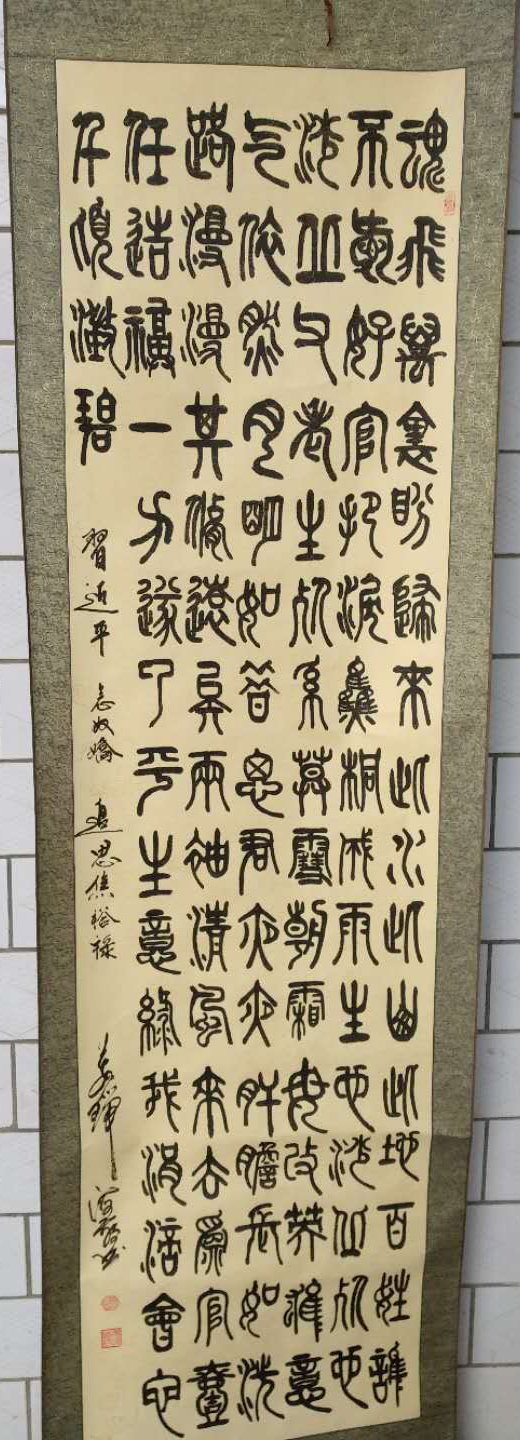 魂飛萬裏盼歸來此水此山此地百姓誰
不愛好官把淚焦桐成雨生也沙丘死也
沙丘父老生死系暮雪朝霜毋改英雄意
气依然月明如昔思君夜夜肝膽長如洗
路漫漫其修遠矣兩袖清風來去爲官壹
任造福一方遂了平生意綠我涓滴會它
千頃澂碧
習近平 念奴嬌 追思焦裕祿